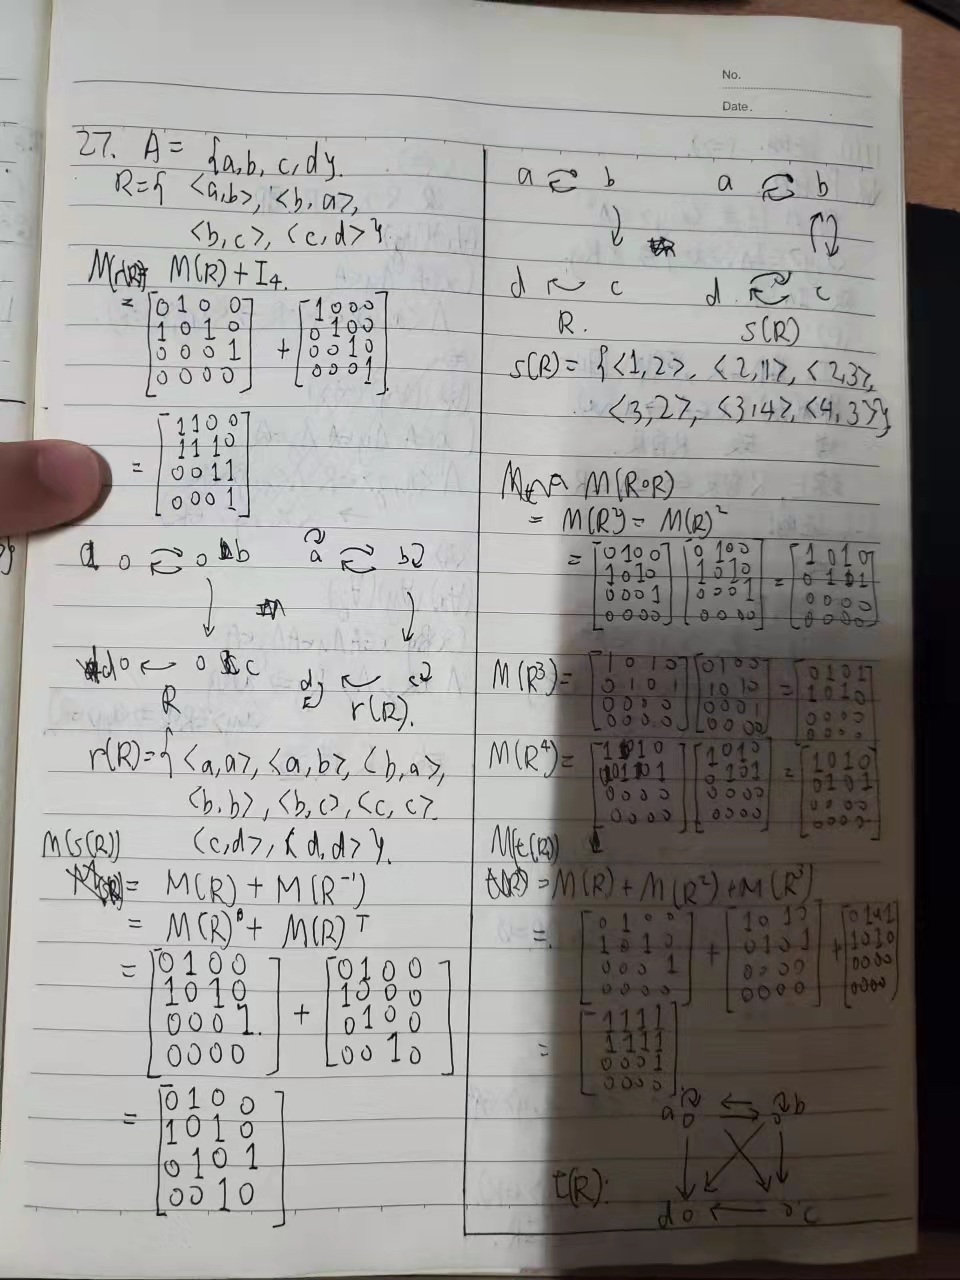 No.
Date.
27. A = {a, b, c, d}.
R = { <a,b>, <b, a>,
<b, c>, <c, d> }
M(R) + I4.
= [0 1 0 0
1 0 1 0
0 0 0 1
0 0 0 0] + [1 0 0 0
0 1 0 0
0 0 1 0
0 0 0 1]
= [1 1 0 0
1 1 1 0
0 0 1 1
0 0 0 1]
a b a b
d c d c
R r(R).
r(R) = { <a,a>, <a,b>, <b,a>,
<b,b>, <b,c>, <c,c>.
<c,d>, <d,d> }.
M(s(R))
= M(R) + M(R⁻¹)
= M(R) + M(R)ᵀ
= [0 1 0 0
1 0 1 0
0 0 0 1.
0 0 0 0] + [0 1 0 0
1 0 0 0
0 1 0 0
0 0 1 0]
= [0 1 0 0
1 0 1 0
0 1 0 1
0 0 1 0]
a b a b
d c d c
R. s(R)
s(R) = { <1,2>, <2,1>, <2,3>,
<3,2>, <3,4>, <4,3> }
M(R∘R)
= M(R²) = M(R)²
= [0 1 0 0
1 0 1 0
0 0 0 1
0 0 0 0] [0 1 0 0
1 0 1 0
0 0 0 1
0 0 0 0] = [1 0 1 0
0 1 0 1
0 0 0 0
0 0 0 0]
M(R³) = [1 0 1 0
0 1 0 1
0 0 0 0
0 0 0 0] [0 1 0 0
1 0 1 0
0 0 0 1
0 0 0 0] = [0 1 0 1
1 0 1 0
0 0 0 0
0 0 0 0]
M(R⁴) = [1 0 1 0
0 1 0 1
0 0 0 0
0 0 0 0] [1 0 1 0
0 1 0 1
0 0 0 0
0 0 0 0] = [1 0 1 0
0 1 0 1
0 0 0 0
0 0 0 0]
M(t(R))
= M(R) + M(R²) + M(R³)
= [0 1 0 0
1 0 1 0
0 0 0 1
0 0 0 0] + [1 0 1 0
0 1 0 1
0 0 0 0
0 0 0 0] + [0 1 0 1
1 0 1 0
0 0 0 0
0 0 0 0]
= [1 1 1 1
1 1 1 1
0 0 0 1
0 0 0 0]
a b
t(R):
d c